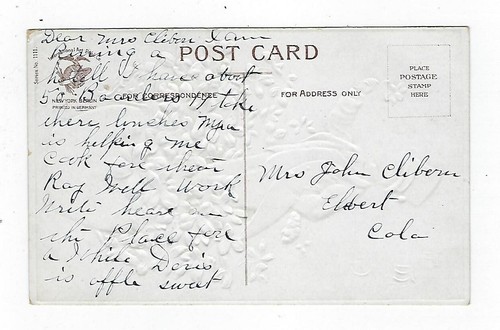 Dear Mrs Clibern I am
Runing a
hotell I have about
50 Boarders 17 take
there lunches Myra
is helping me
Cook fore them
Ray Will Work
Write heare on
the Place fore
a While Doris
is offle sweet
POST CARD
Series No. 111
NEW YORK BERLIN
PRINTED IN GERMANY
FOR CORRESPONDENCE
FOR ADDRESS ONLY
PLACE
POSTAGE
STAMP
HERE
Mrs John Clibern
Elbert
Colo